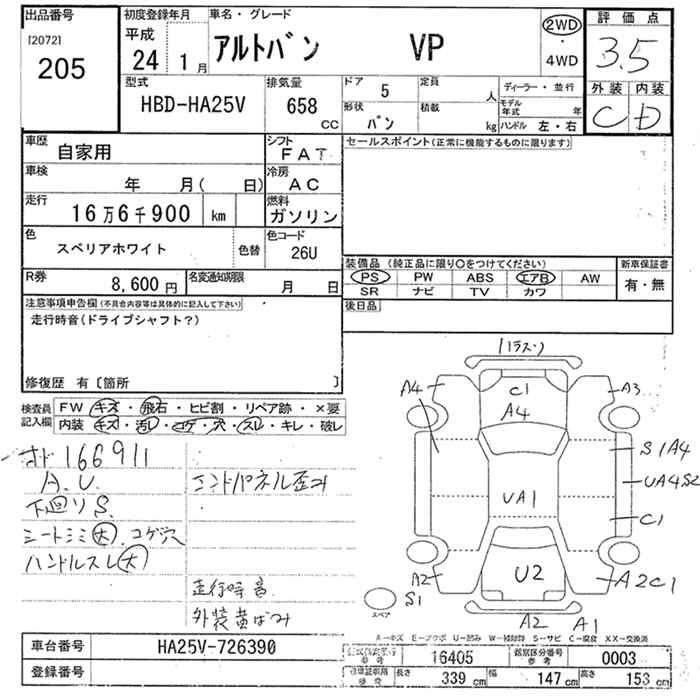 出品番号
[2072]
205
初度登録年月
平成
24 1月
車名・グレード
アルトバン VP
2WD
・
4WD
評価点
3.5
外装 内装
C D
型式
HBD-HA25V
排気量
658
CC
ドア
5
形状
バン
定員
人
積載
kg
ディーラー・並行
モデル年式 年
ハンドル 左・右
車歴
自家用
シフト
FAT
車検
年 月( 日)
冷房
AC
走行
16万6千900 km
燃料
ガソリン
色
スペリアホワイト
色替
色コード
26U
R券
8,600円
名変通知期限
月 日
セールスポイント(正常に機能するものに限ります)
装備品 (純正品に限り○をつけてください)
新車保証書
PS PW ABS エアB AW
SR ナビ TV カワ
有・無
後日品
注意事項申告欄(不具合内容等は具体的に記入して下さい)
走行時音(ドライブシャフト?)
修復歴 有〔箇所 〕
検査員
記入欄
FW キズ・飛石・ヒビ割・リペア跡・×要
内装 キズ・汚レ・コゲ・穴・スレ・キレ・破レ
166911
A.U.
下廻りS
シートシミ大.コゲ穴
ハンドルスレ大
エンドパネル歪み
走行時音
外装黄ばみ
A4
C1
A4
A3
S1A4
UA4S2
UA1
C1
A2
U2
A2C1
S1
スペア
A2 A1
A-キズ E-エクボ U-凹み W-補修跡 S-サビ C-腐食 XX-交換済
車台番号
HA25V-726390
登録番号
型式指定番号
参考
16405
類別区分番号
参考
0003
車庫証明用
参考
長さ
339 cm
幅
147 cm
高さ
153 cm